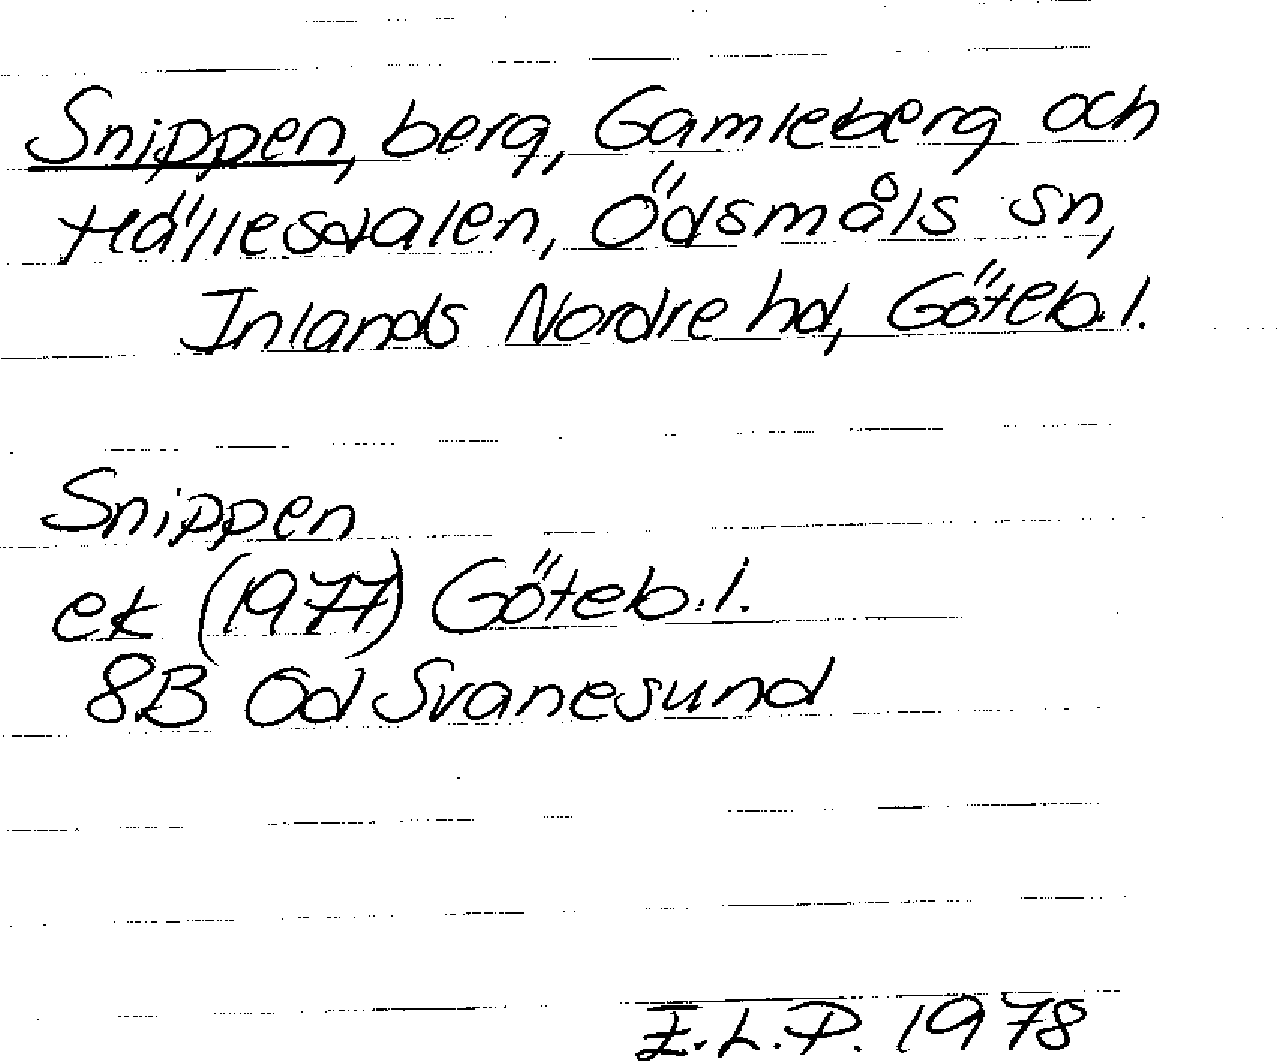 Snippen, berg, Gamleberg och
Hällesdalen, Ödsmåls sn,
Inlands Nordre hd, Göteb.l.
Snippen
ek (1977) Göteb.l.
8B 0d Svanesund
E.L.P. 1978